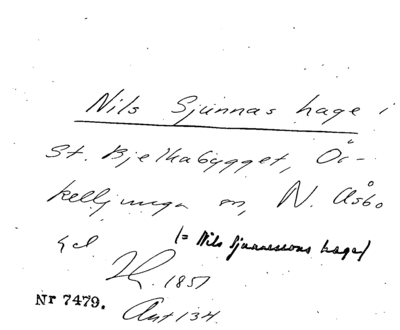 Nils Sjunnas hage i
St. Bjelkabygget, Ör-
kelljunga sn, N. Åsbo
(= Nils Sjunnessons hage)
1851
Nr 7479.
134